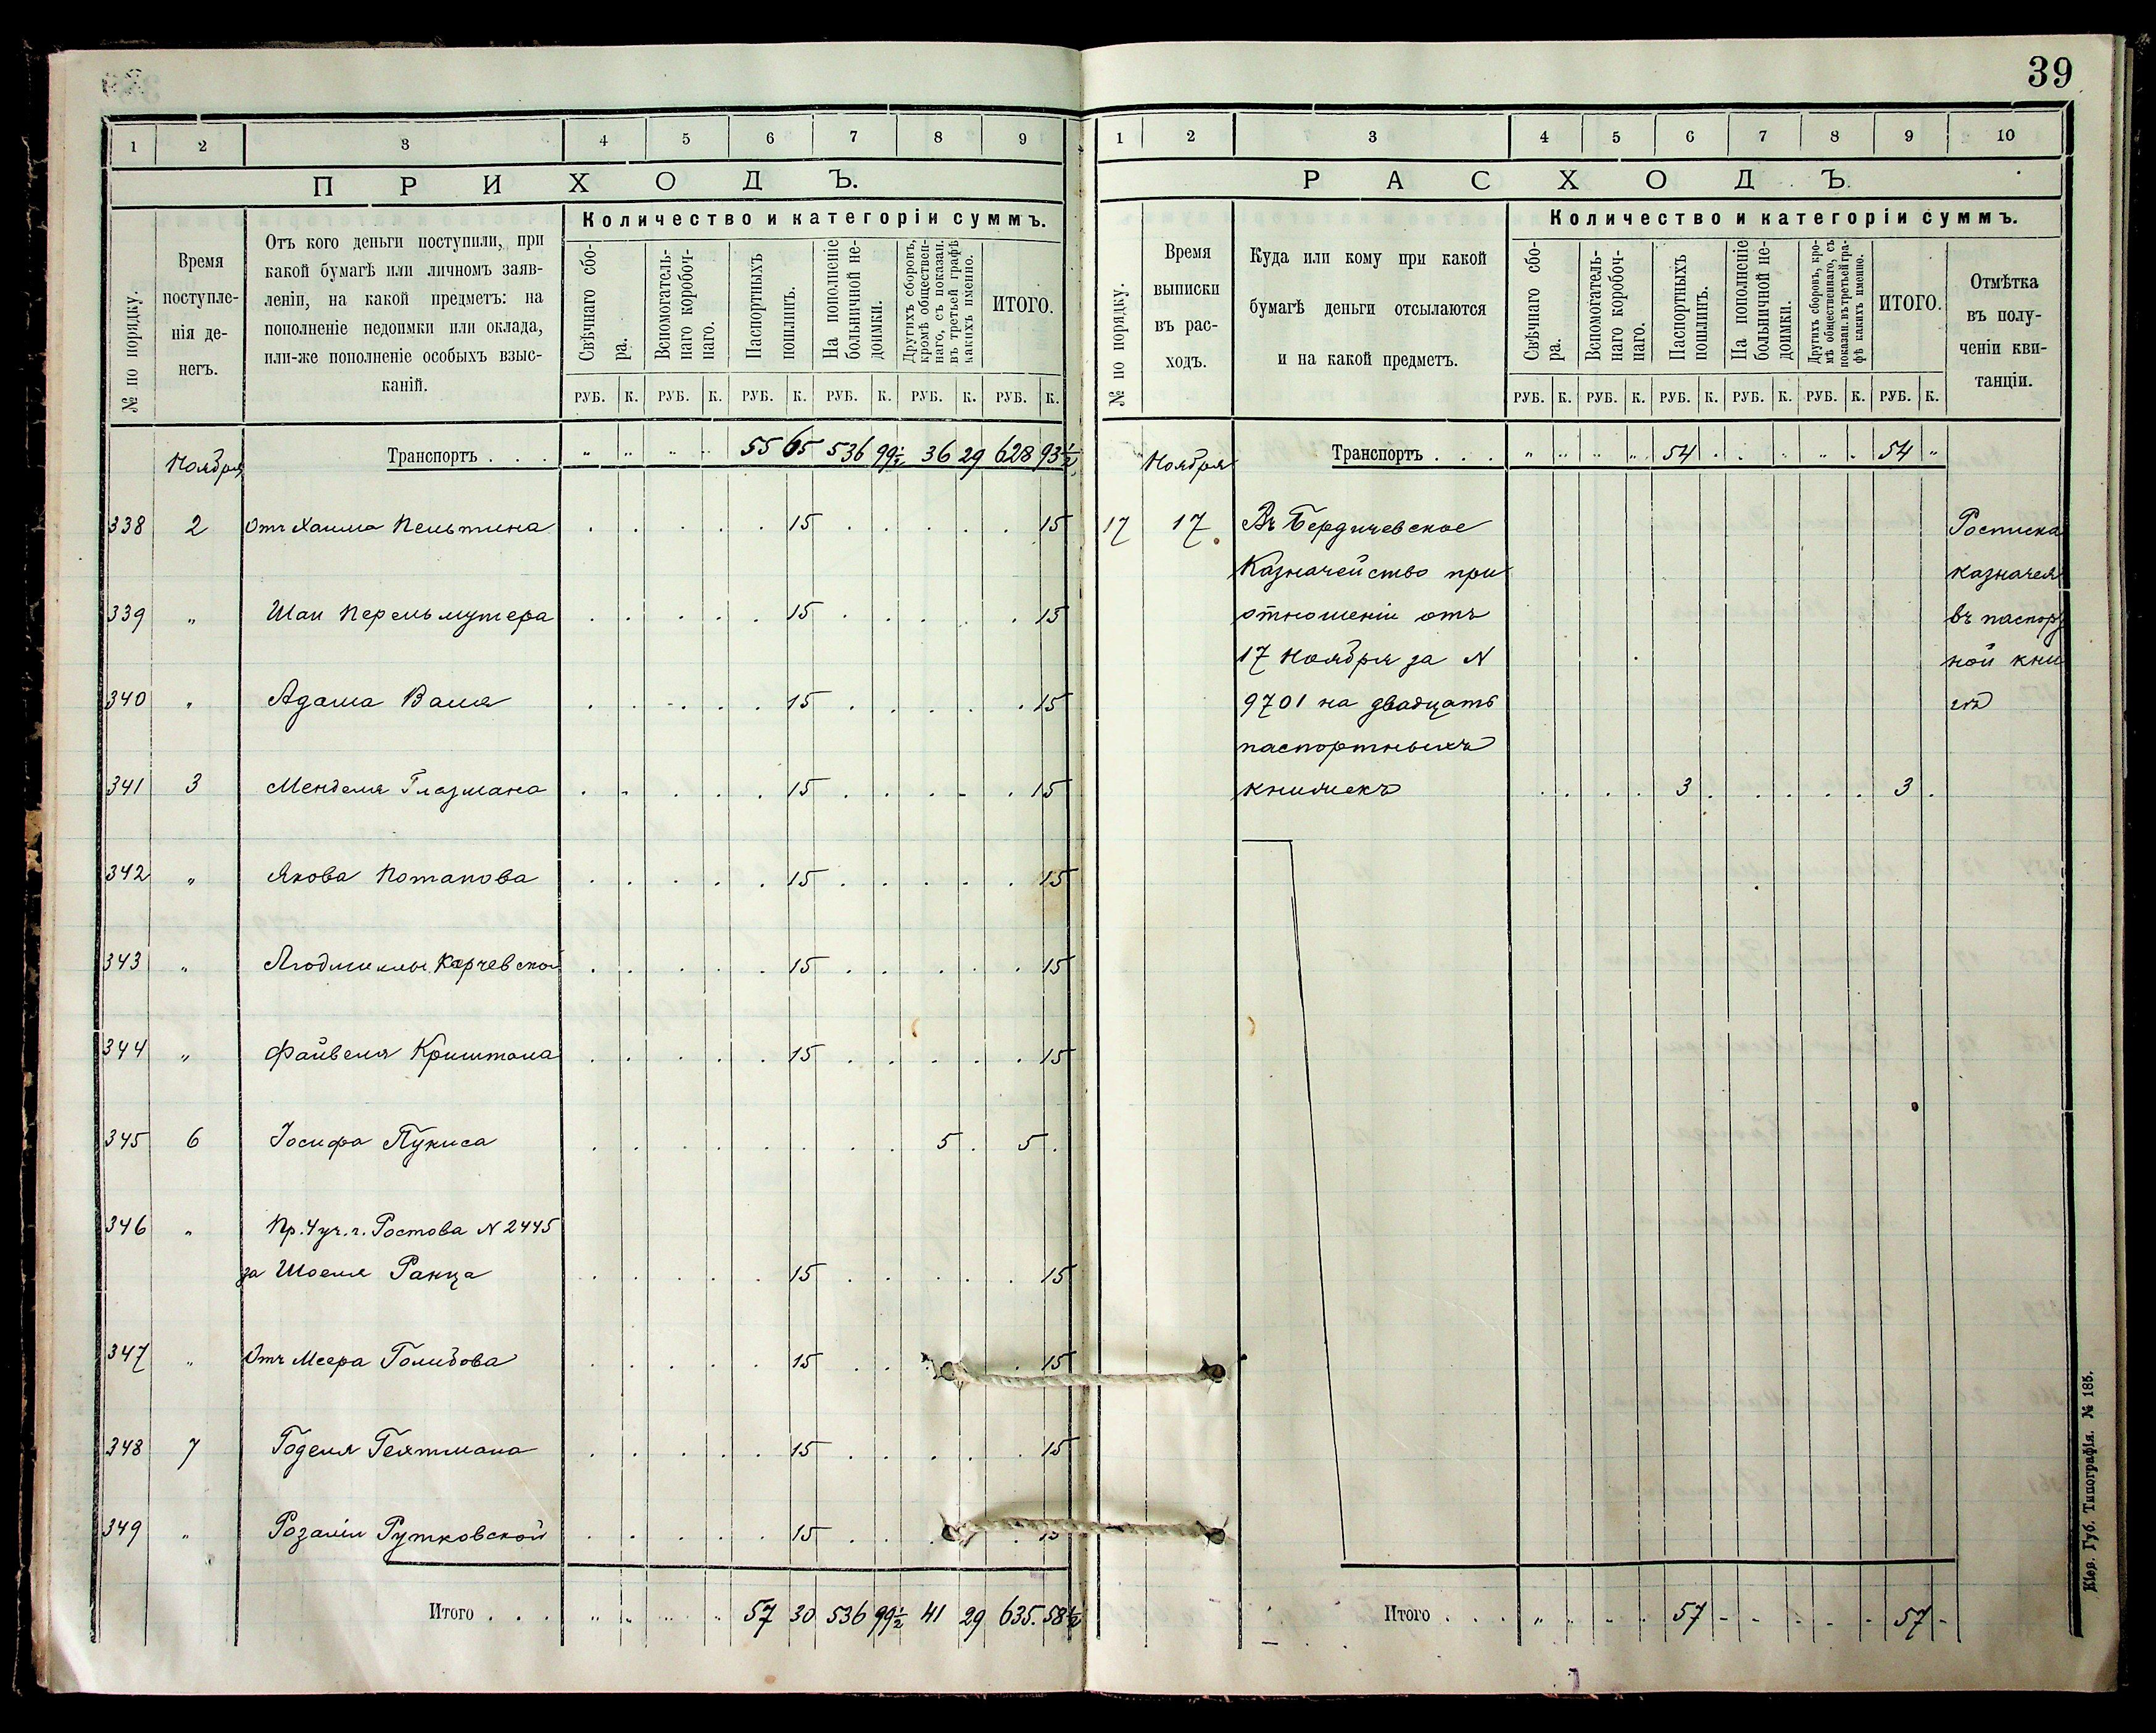 39
1 2 3 4 5 6 7 8 9
П Р И Х О Д Ъ.
№ по порядку.
Время
поступле-
нія де-
негъ.
Отъ кого деньги поступили, при
какой бумагѣ или личномъ заяв-
леніи, на какой предметъ: на
пополненіе недоимки или оклада,
или-же пополненіе особыхъ взыс-
каній.
Количество и категоріи суммъ.
Свѣчнаго сбо-
ра.
Вспомогатель-
наго коробоч-
наго.
Паспортныхъ
пошлинъ.
На пополненіе
больничной не-
доимки.
Другихъ сборовъ,
кромѣ обществен-
наго, съ показан.
въ третьей графѣ
какихъ именно.
ИТОГО.
РУБ. К. РУБ. К. РУБ. К. РУБ. К. РУБ. К. РУБ. К.
Ноября Транспортъ . . . „ „ „ „ 55 65 536 99½ 36 29 628 93½
338 2 Отъ Хаима Пельтина 15 15
339 „ Шаи Перельмутера 15 15
340 „ Адама Валя 15 15
341 3 Менделя Глазмана 15 15
342 „ Якова Потапова 15 15
343 „ Людмилы Карчевской 15 15
344 „ Файвеля Криштала 15 15
345 6 Іосифа Пукиса 5 5
346 „ Пр. 4 уч. г. Ростова N 2445
за Шоеля Ранца 15 15
347 „ Отъ Меера Голубова 15 15
348 7 Годеля Гехтмана 15 15
349 „ Розаліи Рутковской 15 15
Итого . . . „ „ „ „ 57 30 536 99½ 41 29 635. 58½
1 2 3 4 5 6 7 8 9 10
Р А С Х О Д Ъ.
№ по порядку.
Время
выписки
въ рас-
ходъ.
Куда или кому при какой
бумагѣ деньги отсылаются
и на какой предметъ.
Количество и категоріи суммъ.
Свѣчнаго сбо-
ра.
Вспомогатель-
наго коробоч-
наго.
Паспортныхъ
пошлинъ.
На пополненіе
больничной не-
доимки.
Другихъ сборовъ, кро-
мѣ общественнаго, съ
показан. въ третьей гра-
фѣ какихъ именно.
ИТОГО.
Отмѣтка
въ полу-
ченіи кви-
танціи.
РУБ. К. РУБ. К. РУБ. К. РУБ. К. РУБ. К. РУБ. К.
Ноября Транспортъ . . . „ „ „ „ 54 . . „ „ . 54 „
17 17 Въ Бердичевское Росписка
Казначейство при казначея
отношеніи отъ въ паспорт
17 Ноября за N ной кни
9701 на двадцать гѣ
паспортныхъ
книжекъ 3 3
Итого . . . „ „ - - 57 - - - - - 57 -
Кіев. Губ. Типографія. № 185.